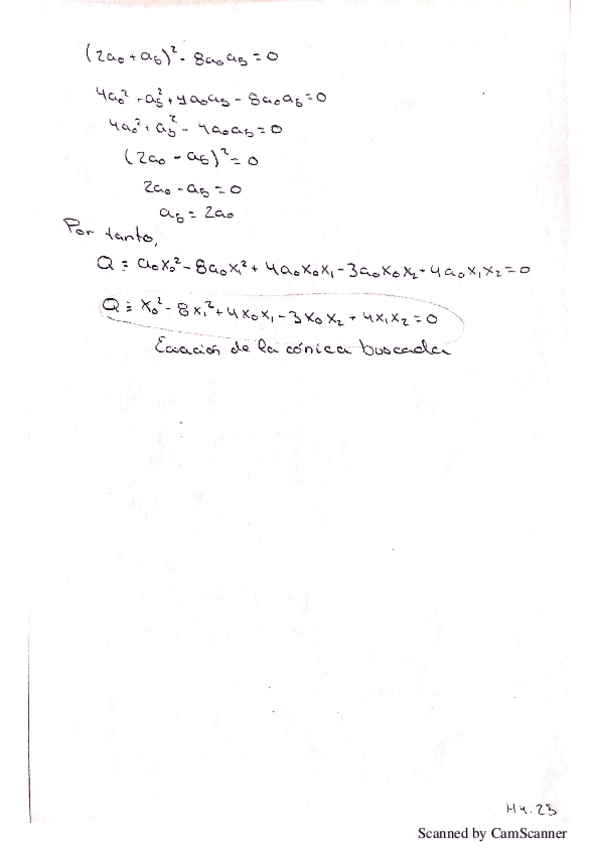 (2a₀ + a₅)² - 8a₀a₅ = 0
4a₀² + a₅² + 4a₀a₅ - 8a₀a₅ = 0
4a₀² + a₅² - 4a₀a₅ = 0
(2a₀ - a₅)² = 0
2a₀ - a₅ = 0
a₅ = 2a₀
Por tanto,
Q ≡ a₀x₀² - 8a₀x₁² + 4a₀x₀x₁ - 3a₀x₀x₂ + 4a₀x₁x₂ = 0
Q ≡ x₀² - 8x₁² + 4x₀x₁ - 3x₀x₂ + 4x₁x₂ = 0
Ecuación de la cónica buscada
H4.23
Scanned by CamScanner